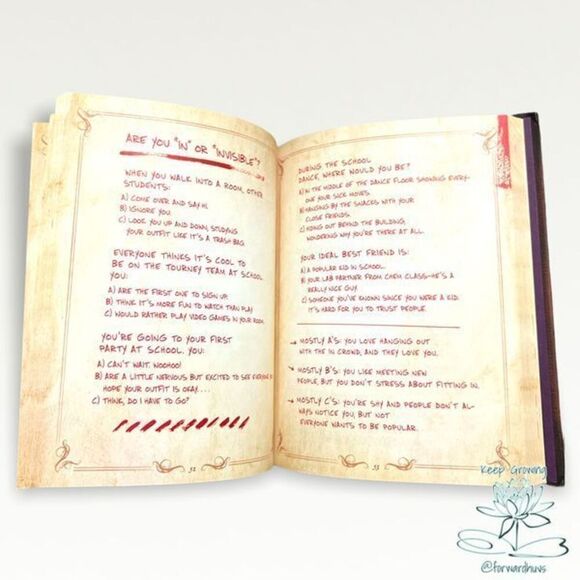 ARE YOU "IN" OR "INVISIBLE"?
WHEN YOU WALK INTO A ROOM, OTHER
STUDENTS:
A) COME OVER AND SAY HI.
B) IGNORE YOU.
C) LOOK YOU UP AND DOWN, STUDYING
YOUR OUTFIT LIKE IT'S A TRASH BAG.
EVERYONE THINKS IT'S COOL TO
BE ON THE TOURNEY TEAM AT SCHOOL.
YOU:
A) ARE THE FIRST ONE TO SIGN UP.
B) THINK IT'S MORE FUN TO WATCH THAN PLAY.
C) WOULD RATHER PLAY VIDEO GAMES IN YOUR ROOM.
YOU'RE GOING TO YOUR FIRST
PARTY AT SCHOOL. YOU:
A) CAN'T WAIT. WOOHOO!
B) ARE A LITTLE NERVOUS BUT EXCITED TO SEE EVERYONE
HOPE YOUR OUTFIT IS OKAY....
C) THINK, DO I HAVE TO GO?
52
DURING THE SCHOOL
DANCE, WHERE WOULD YOU BE?
A) IN THE MIDDLE OF THE DANCE FLOOR SHOWING EVERY-
ONE YOUR SICK MOVES.
B) HANGING BY THE SNACKS WITH YOUR
CLOSE FRIENDS.
C) HIDING OUT BEHIND THE BUILDING,
WONDERING WHY YOU'RE THERE AT ALL.
YOUR IDEAL BEST FRIEND IS:
A) A POPULAR KID IN SCHOOL.
B) YOUR LAB PARTNER FROM CHEM CLASS—HE'S A
REALLY NICE GUY.
C) SOMEONE YOU'VE KNOWN SINCE YOU WERE A KID.
IT'S HARD FOR YOU TO TRUST PEOPLE.
→ MOSTLY A'S: YOU LOVE HANGING OUT
WITH THE IN CROWD, AND THEY LOVE YOU.
→ MOSTLY B'S: YOU LIKE MEETING NEW
PEOPLE, BUT YOU DON'T STRESS ABOUT FITTING IN.
→ MOSTLY C'S: YOU'RE SHY AND PEOPLE DON'T AL-
WAYS NOTICE YOU, BUT NOT
EVERYONE WANTS TO BE POPULAR.
53
Keep Growing
@forwardhuvs